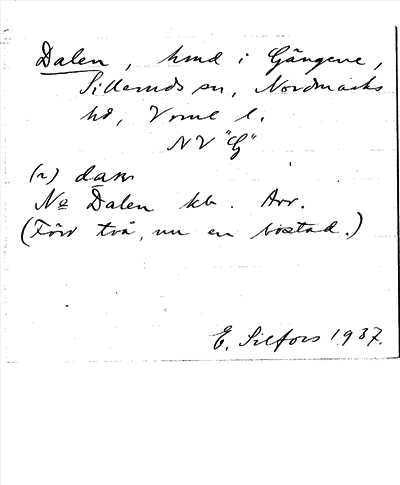 Dalen, hmd i Gängene,
Silleruds sn, Nordmarks
hd, Vrml l.
NV "G"
(~) dam
No Dalen kb. Arr.
(Förr två, nu en bostad.)
E. Silfors 1937.